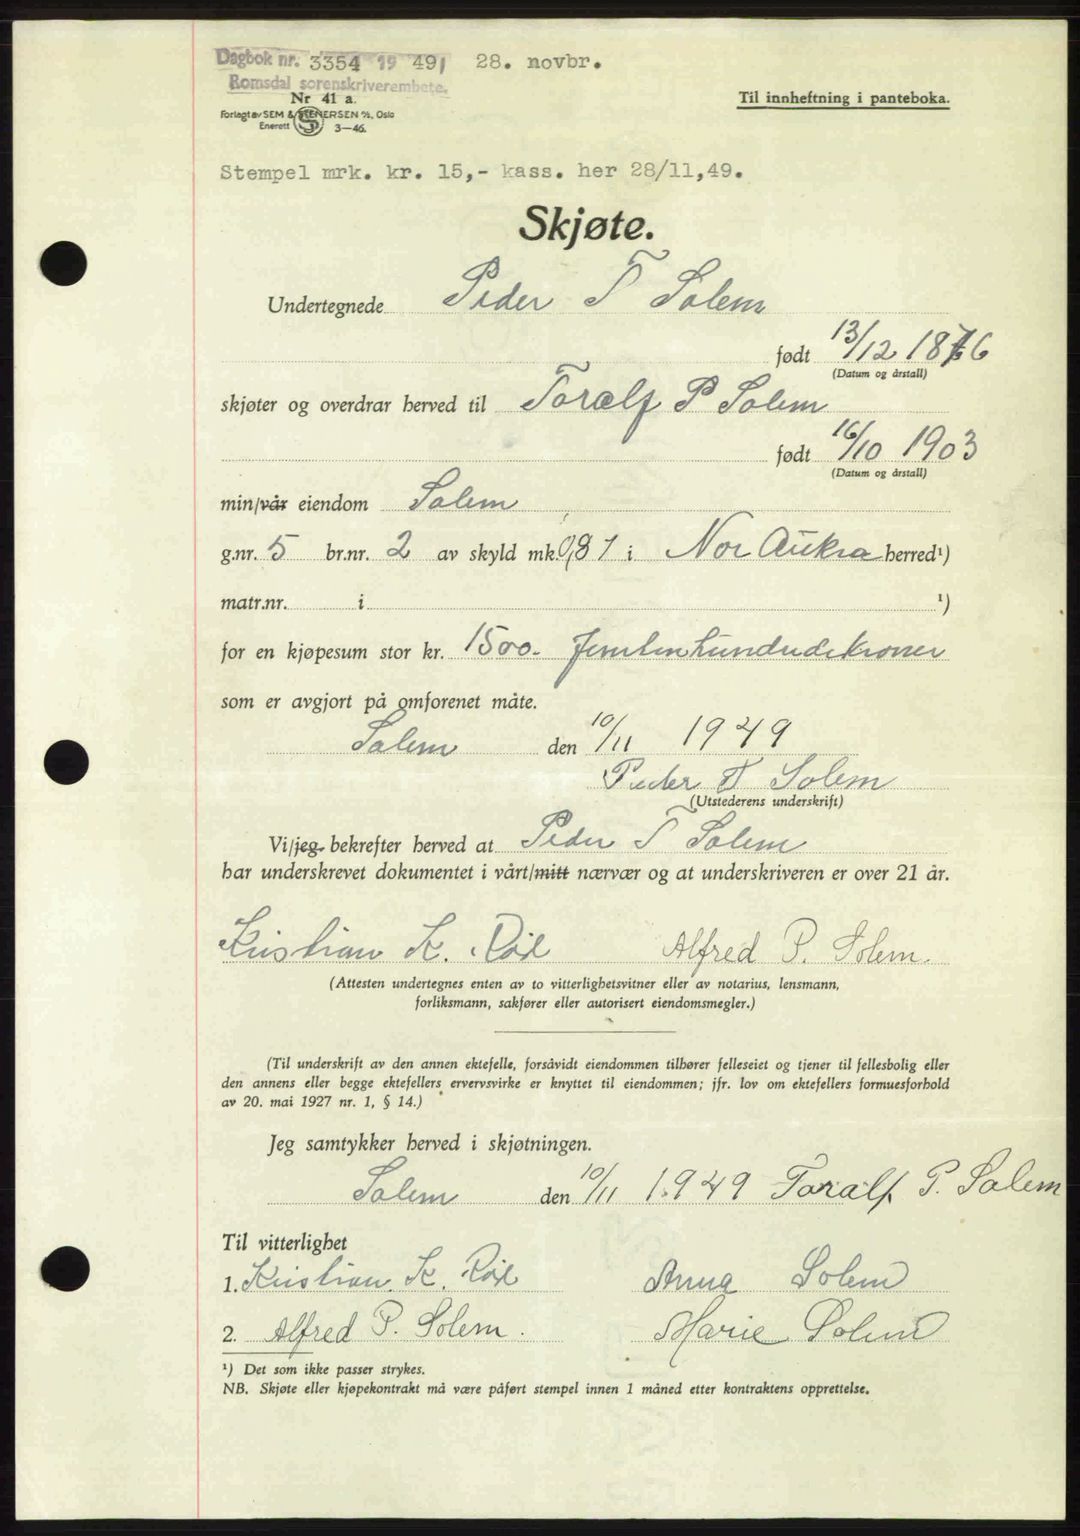 Dagbok nr. 3354 19 49, 28. novbr.
Romsdal sorenskriverembete.
Nr 41 a.
Til innheftning i panteboka.
Forlagt av SEM & STENERSEN A/S, Oslo
Enerett S 3—46.
Stempel mrk. kr. 15,- kass. her 28/11,49.
Skjøte.
Undertegnede Peder T Solem
født 13/12 1876
(Datum og årstall)
skjøter og overdrar herved til Toralf P Solem
født 16/10 1903
(Datum og årstall)
min/vår eiendom Solem
g.nr. 5 br.nr. 2 av skyld mk. 0,81 i Nor Aukra herred¹)
matr.nr. i ¹)
for en kjøpesum stor kr. 1500.- femtenhundrede kroner
som er avgjort på omforenet måte.
Solem den 10/11 1949
Peder T Solem
(Utstederens underskrift)
Vi/jeg bekrefter herved at Peder T Solem
har underskrevet dokumentet i vårt/mitt nærvær og at underskriveren er over 21 år.
Kristian K. Röd Alfred P. Solem.
(Attesten undertegnes enten av to vitterlighetsvitner eller av notarius, lensmann,
forliksmann, sakfører eller autorisert eiendomsmegler.)
(Til underskrift av den annen ektefelle, forsåvidt eiendommen tilhører felleseiet og tjener til fellesbolig eller
den annens eller begge ektefellers ervervsvirke er knyttet til eiendommen; jfr. lov om ektefellers formuesforhold
av 20. mai 1927 nr. 1, § 14.)
Jeg samtykker herved i skjøtningen.
Solem den 10/11 1949 Toralf P. Solem
Til vitterlighet
1. Kristian K. Röd Anna Solem
2. Alfred P. Solem. Marie Solem
¹) Det som ikke passer strykes.
NB. Skjøte eller kjøpekontrakt må være påført stempel innen 1 måned etter kontraktens opprettelse.